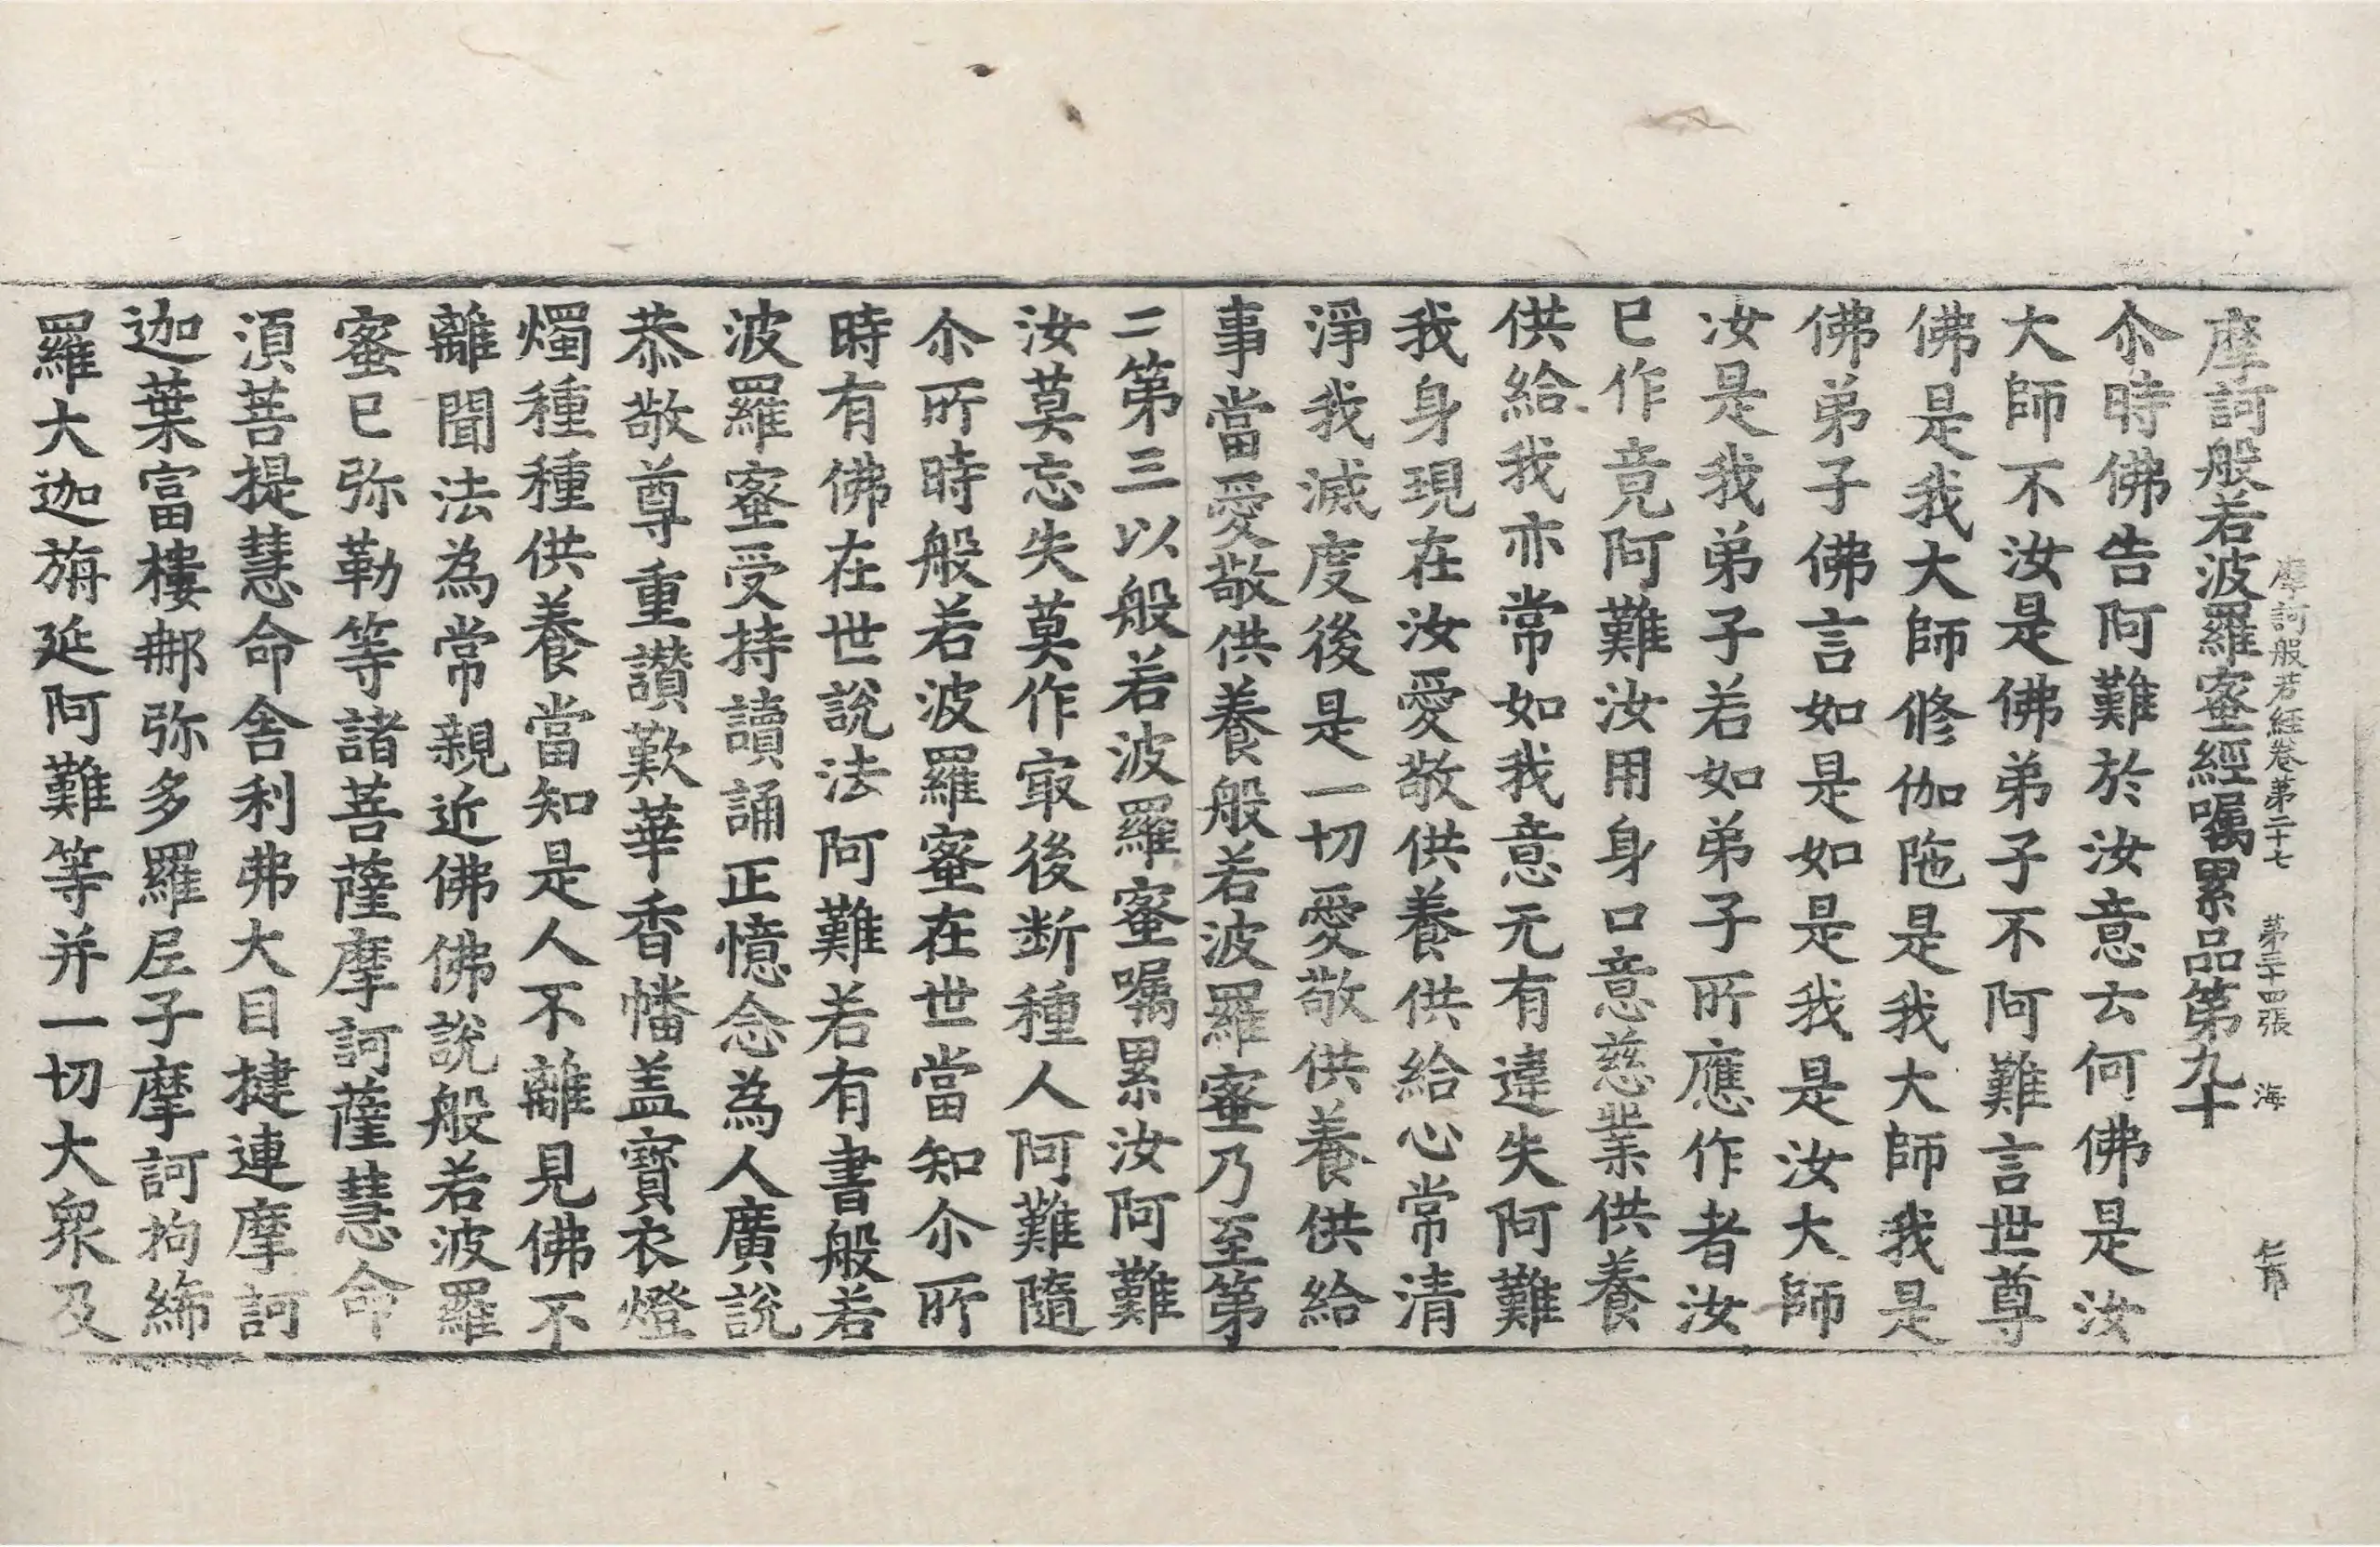 摩訶般若經卷第二十七 第三十四張 海
摩訶般若波羅蜜經囑累品第九十
尒時佛告阿難於汝意云何佛是汝
大師不汝是佛弟子不阿難言世尊
佛是我大師修伽陁是我大師我是
佛弟子佛言如是如是我是汝大師
汝是我弟子若如弟子所應作者汝
已作竟阿難汝用身口意慈業供養
供給我亦常如我意无有違失阿難
我身現在汝愛敬供養供給心常清
淨我滅度後是一切愛敬供養供給
事當愛敬供養般若波羅蜜乃至第
二第三以般若波羅蜜囑累汝阿難
汝莫忘失莫作冣後断種人阿難隨
尒所時般若波羅蜜在世當知尒所
時有佛在世說法阿難若有書般若
波羅蜜受持讀誦正憶念為人廣說
恭敬尊重讃歎華香幡盖寶衣燈
燭種種供養當知是人不離見佛不
離聞法為常親近佛佛說般若波羅
蜜已弥勒等諸菩薩摩訶薩慧命
湏菩提慧命舍利弗大目揵連摩訶
迦葉富樓那弥多羅尼子摩訶拘絺
羅大迦旃延阿難等并一切大衆及